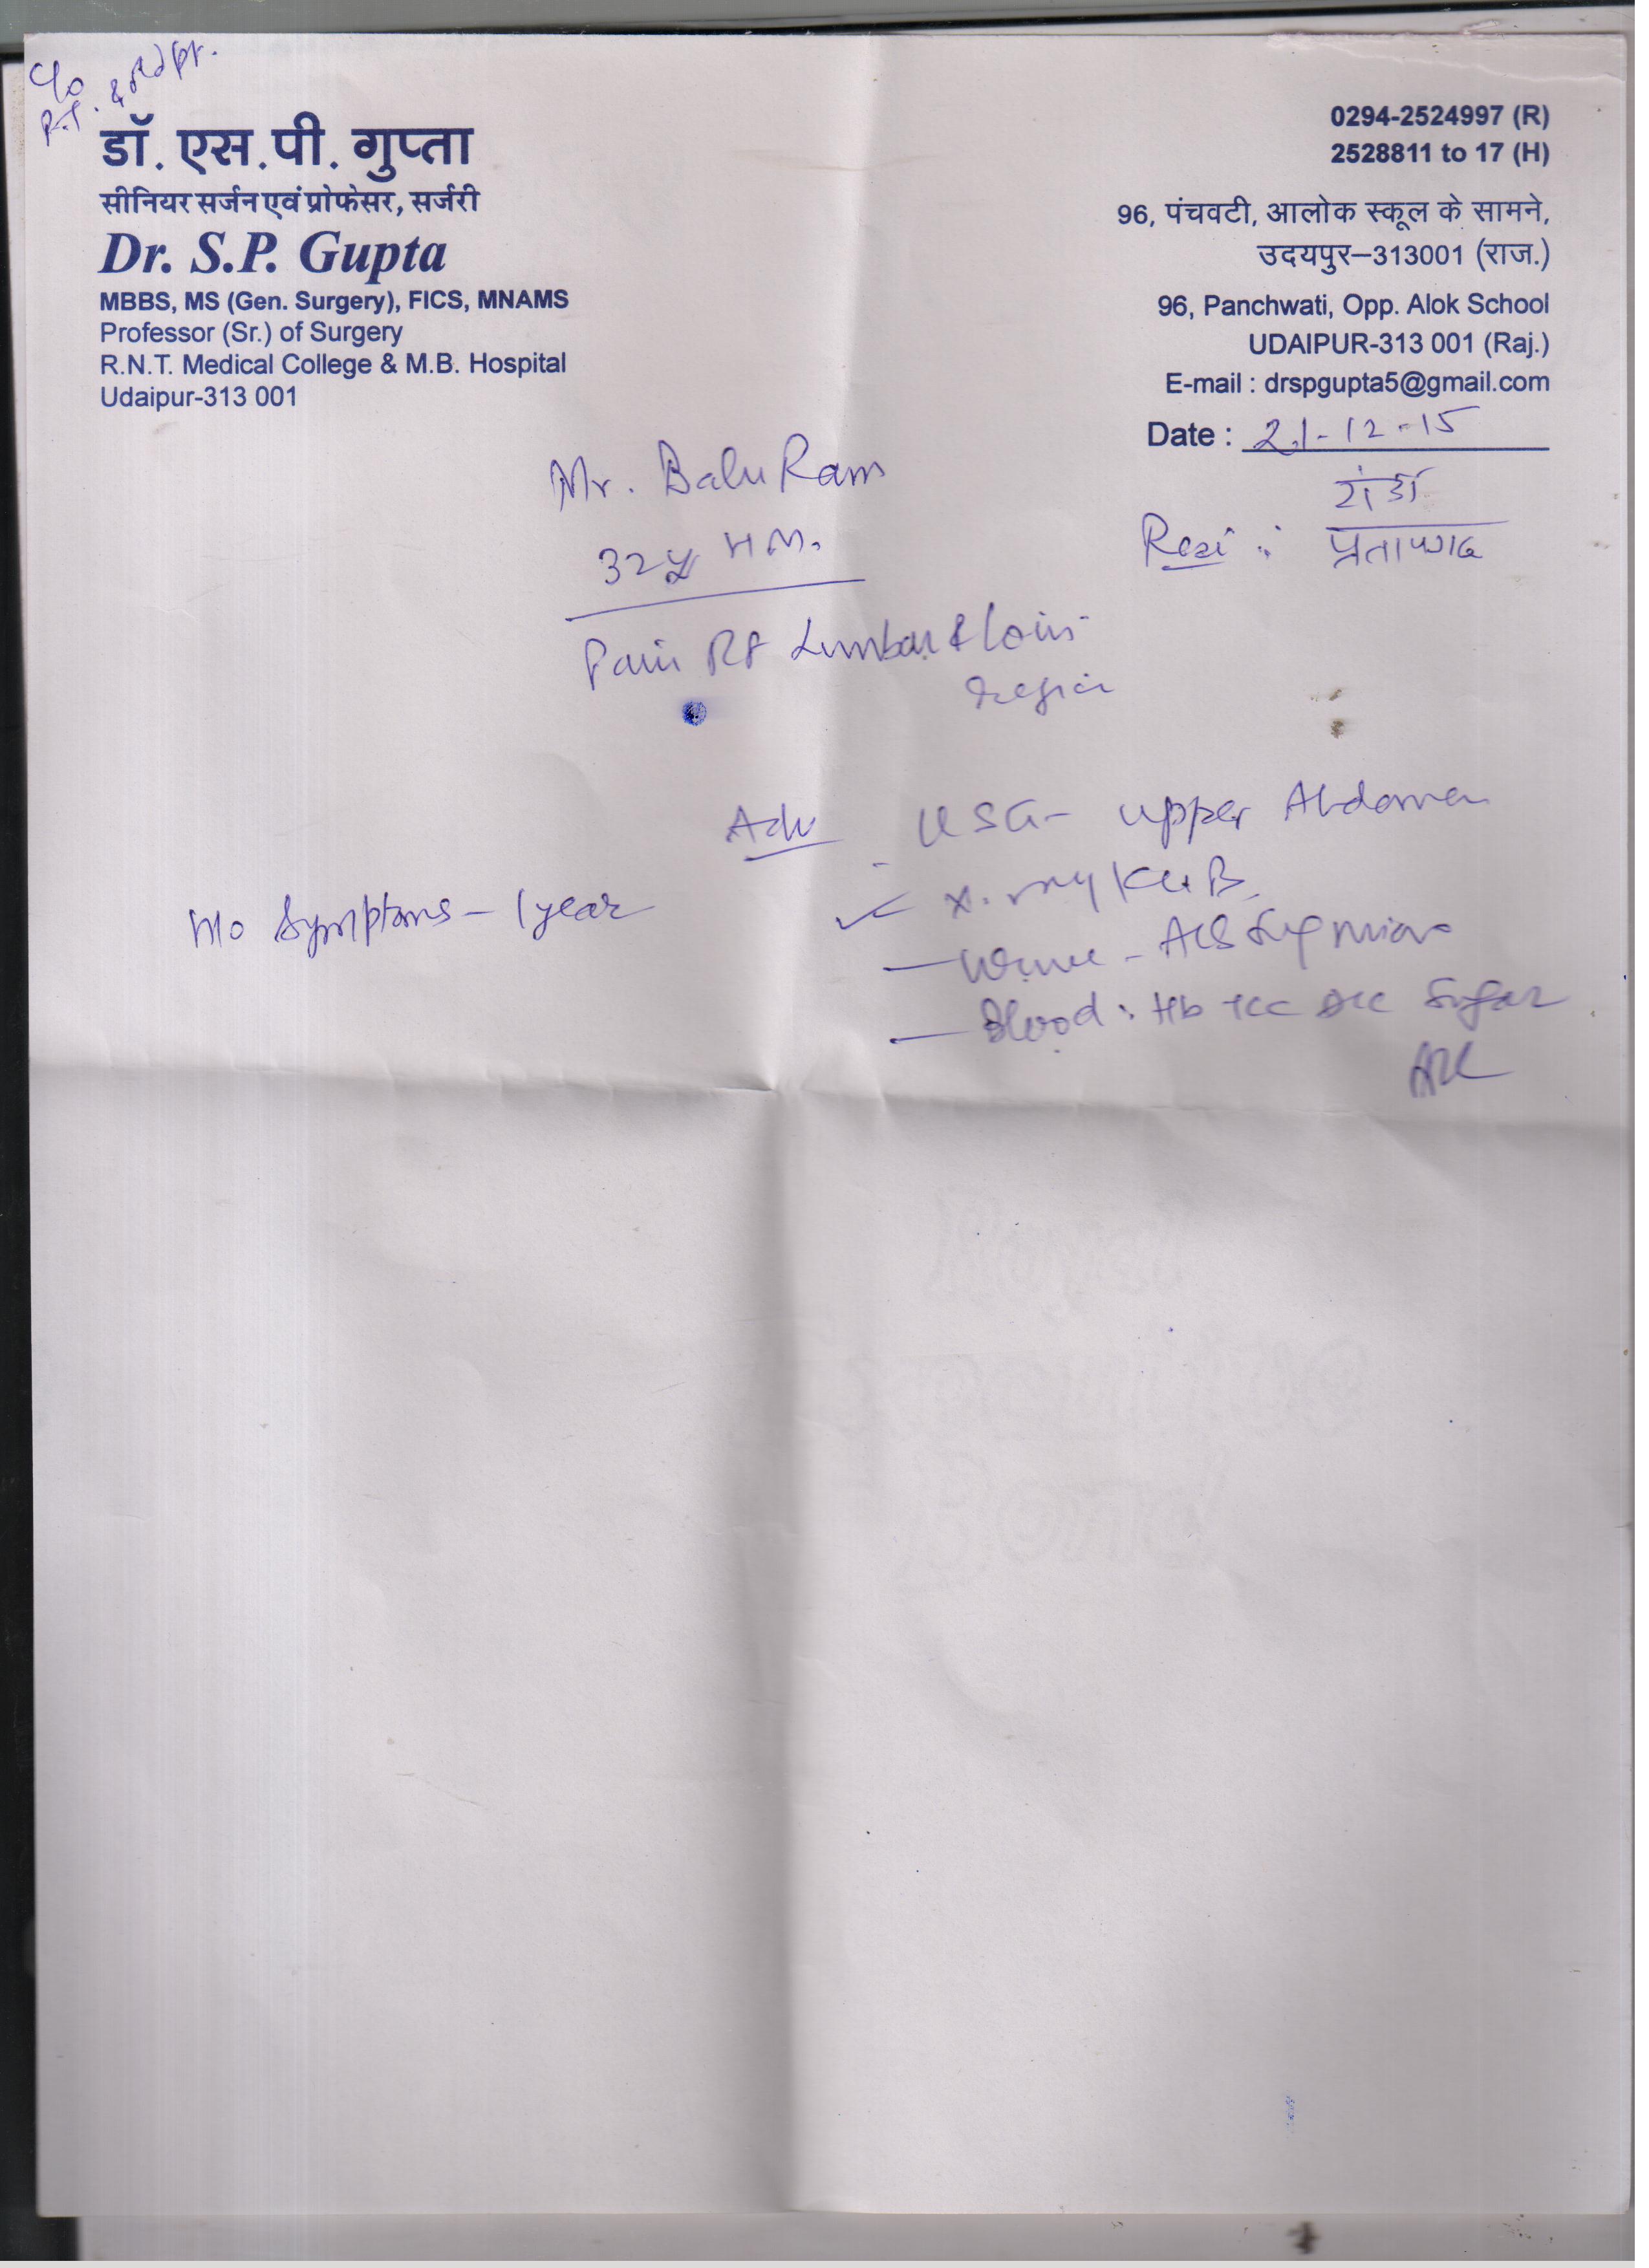 C/o
R.T. &
डॉ. एस.पी. गुप्ता
सीनियर सर्जन एवं प्रोफेसर, सर्जरी
Dr. S.P. Gupta
MBBS, MS (Gen. Surgery), FICS, MNAMS
Professor (Sr.) of Surgery
R.N.T. Medical College & M.B. Hospital
Udaipur-313 001
0294-2524997 (R)
2528811 to 17 (H)
96, पंचवटी, आलोक स्कूल के सामने,
उदयपुर–313001 (राज.)
96, Panchwati, Opp. Alok School
UDAIPUR-313 001 (Raj.)
E-mail : drspgupta5@gmail.com
Date : 21-12-15
Resi :
Mr. Balu Ram
32y HM.
Pain Rt Lumbar & loin
region
Adv USG- upper Abdomen
✓ X. ray KUB
H/o Symptoms - 1 year
— Urine -
— Blood : Hb TLC DLC Sugar